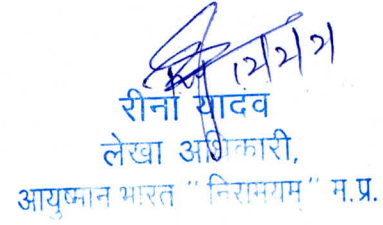 12/2/21
रीना यादव
लेखा अधिकारी,
आयुष्मान भारत "निरामयम्" म.प्र.